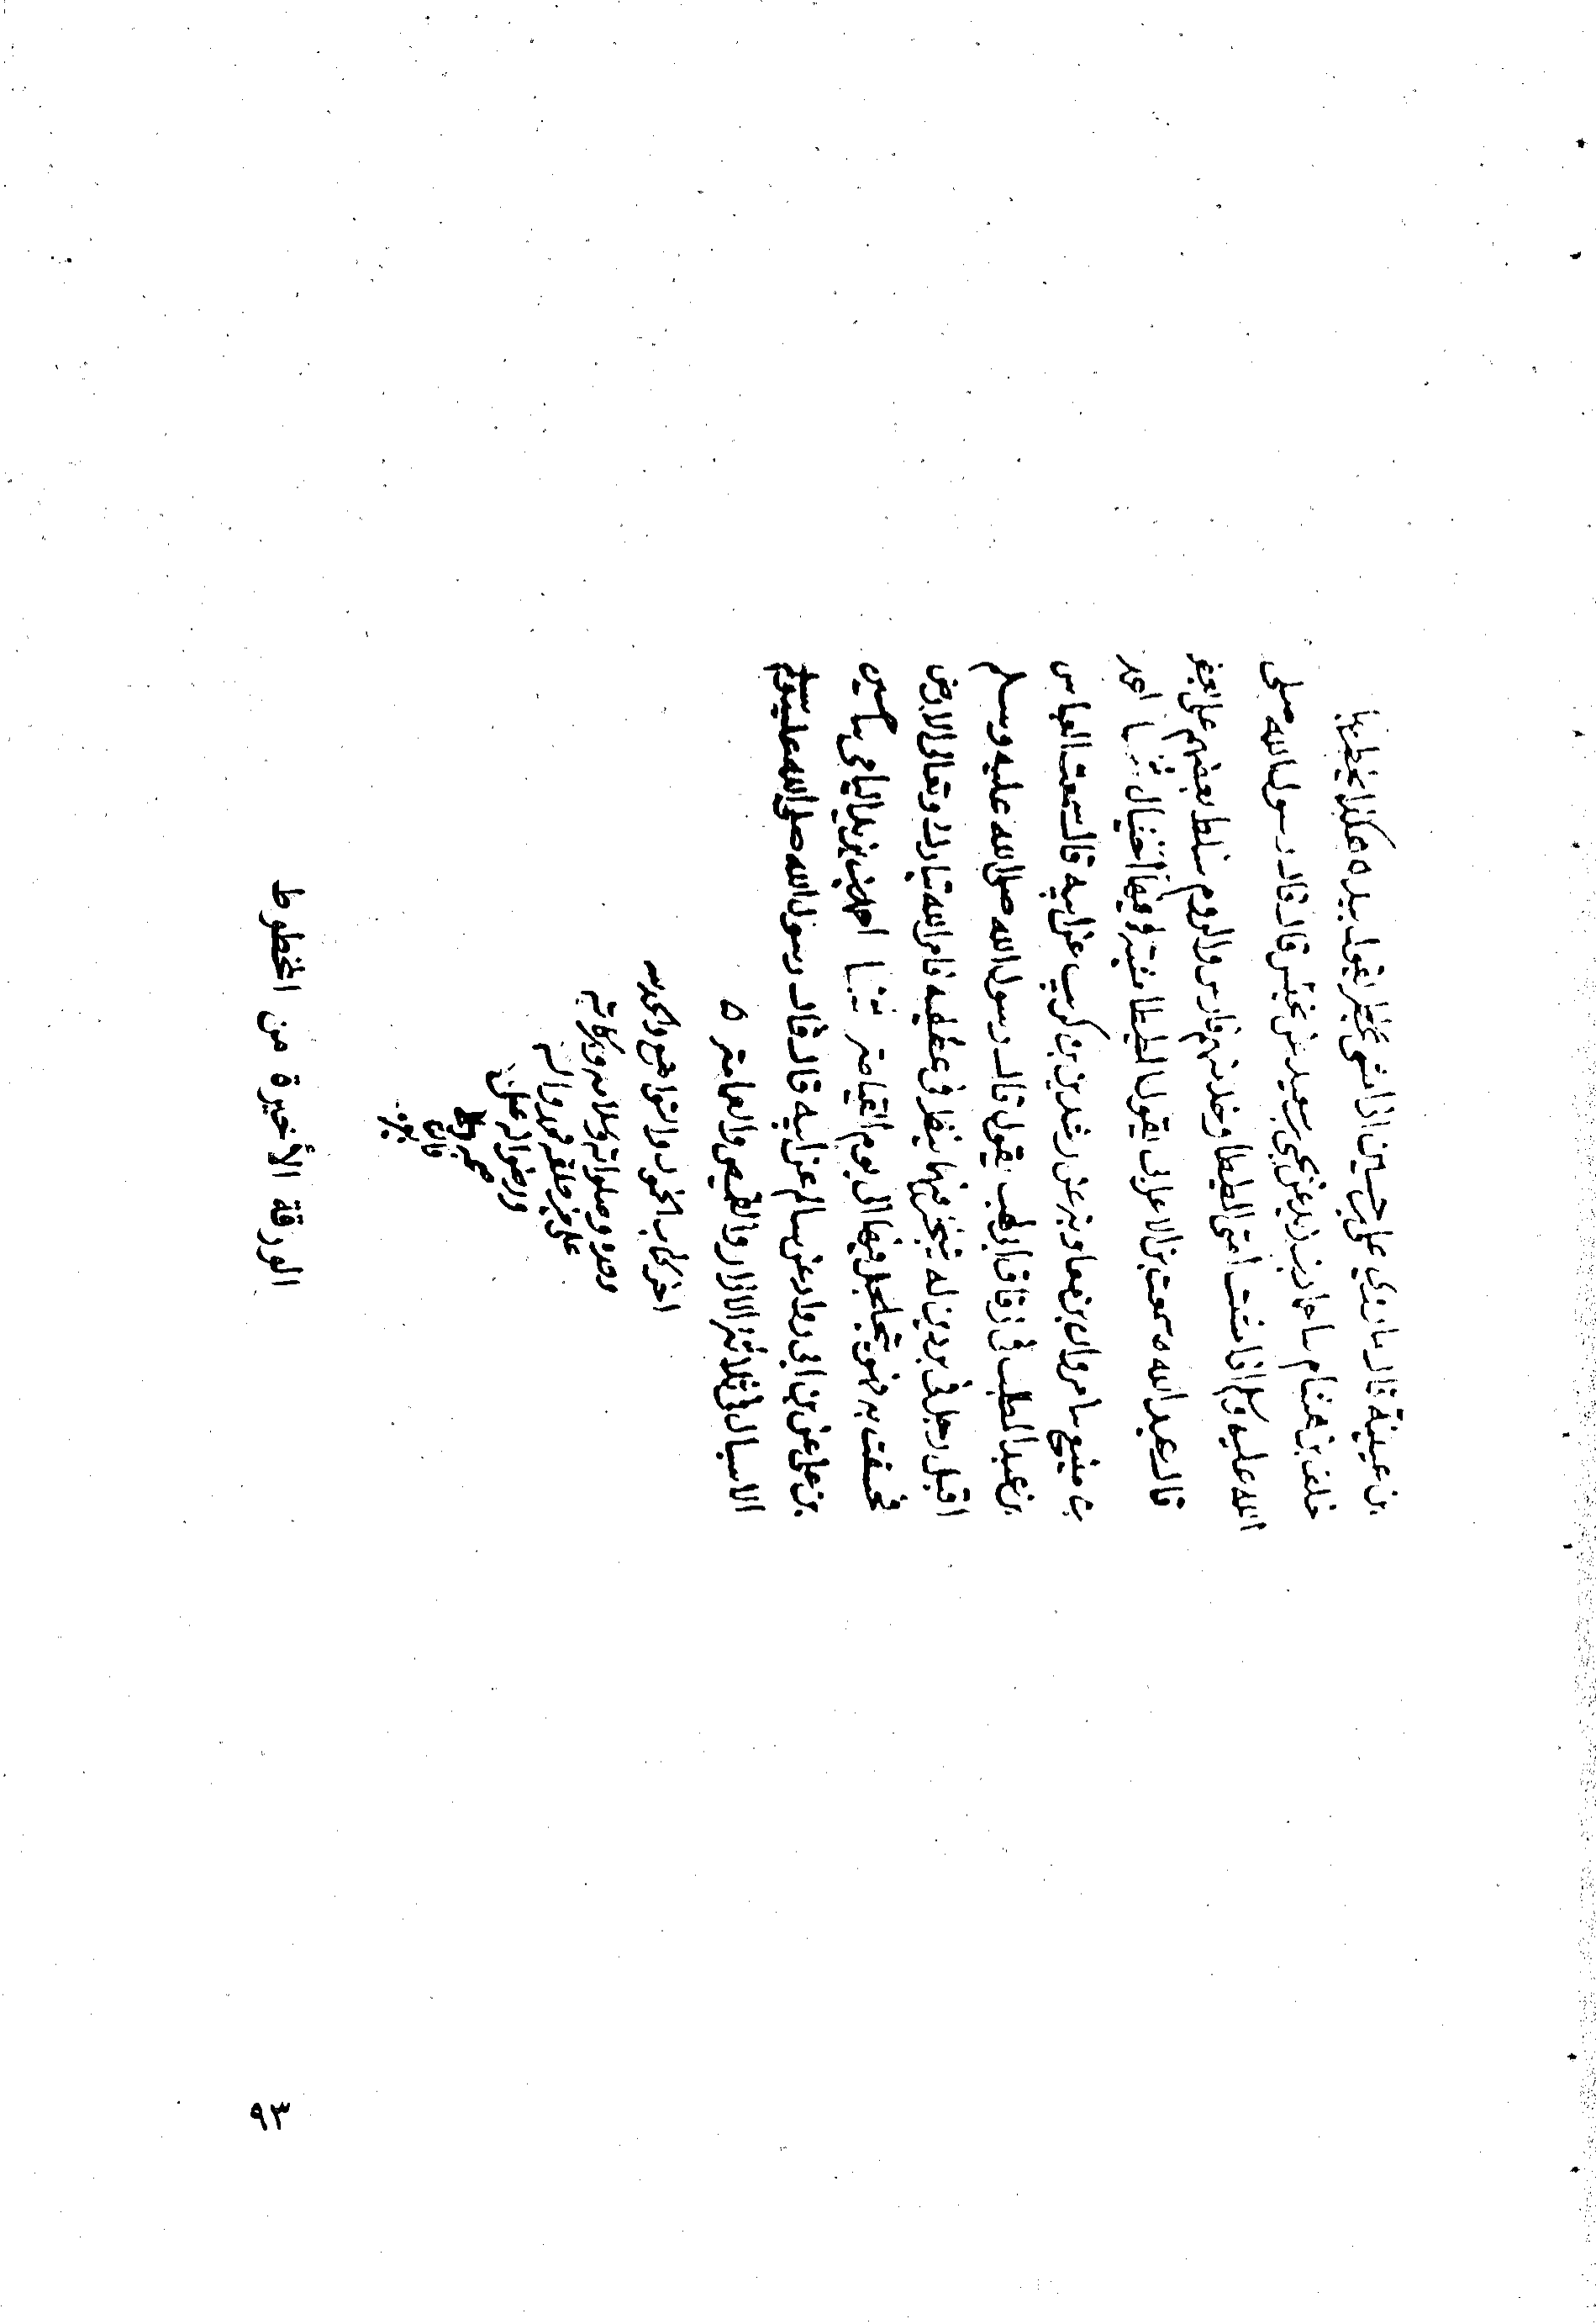 بن عيينة قال ما رئي علي بن حسين اذا مشى يقول بيده هكذا يخطر بها
خلف بن هشام سا حماد بن زيد عن يحيى بن سعيد عن يحنس قال قال رسول الله صلى
الله عليه وسلم اذا مشت امتى المطيطا وخدمتهم فارس والروم سلط بعضهم على بعض
قال عبد الله ه سمعت بن الاعرابى يقول المطيطا مشية فيها اختيال ثنا احمد
بن منيع سا مروان بن معاوية عن رشدين بن كريب عن ابيه قال سمعت العباس
بن عبد المطلب في زقاق ابى لهب يقول قال رسول الله صلى الله عليه وسلم
اقبل رجل في بردين له يتبختر فيهما ينظر في عطفيه فامر الله تبارك وتعالى الارض
فخسفت به فهو يتجلجل فيها الى يوم القيامة ثنا احمد بن بديل اليامى سا حسين
بن علي عن بن ابى رواد عن سالم عن ابيه قال قال رسول الله صلى الله عليه وسلم
الاسبال في ثلاثة الازار والقميص والعمامة ه
اخر كتاب الخمول والتواضع والحمد لله
وحده وصلواته وسلامه وبركاته
على خير خلقه محمد واله
ورضوانه على
الورقة الأخيرة من المخطوط
٩٣